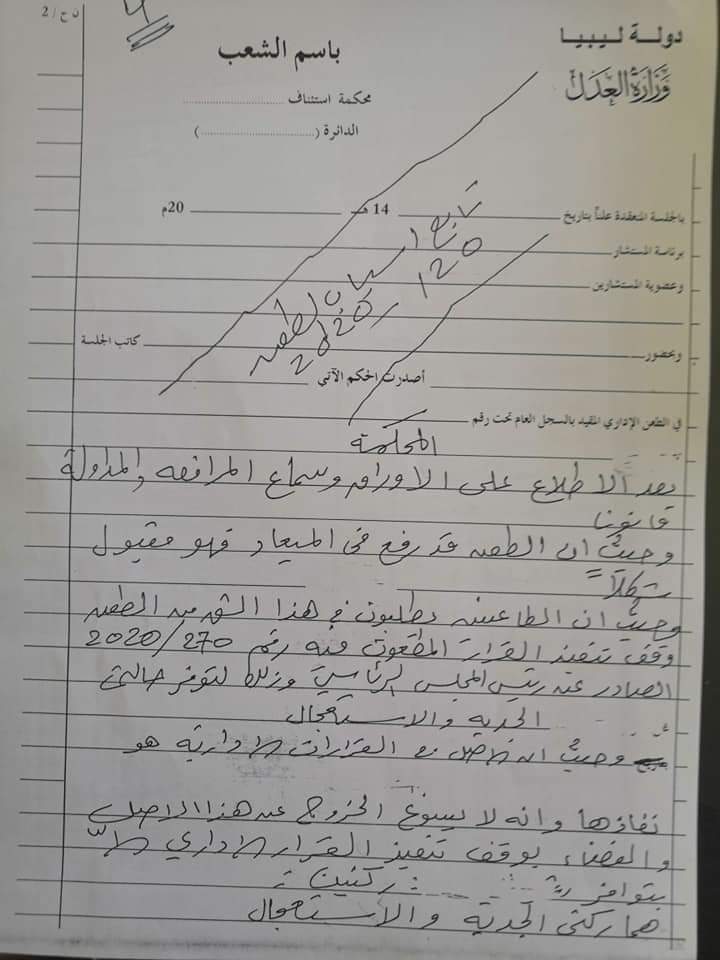 ن ح / 2
دولة ليبيا
وزارة العدل
باسم الشعب
محكمة استئناف
الدائرة ( )
بالجلسة المنعقدة علناً بتاريخ 14 هـ 20م
برئاسة المستشار
وعضوية المستشارين
تابع اسباب الطعن
120 2020
وحضور كاتب الجلسة
أصدرت الحكم الآتي
في الطعن الإداري المقيد بالسجل العام تحت رقم
المحكمة
بعد الاطلاع على الاوراق وسماع المرافعه والمداولة
قانونا
وحيث ان الطعن قد رفع في الميعاد فهو مقبول
شكلاً
وحيث ان الطاعنين يطلبون في هذا الشق من الطعن
وقف تنفيذ القرار المطعون فيه رقم 270/2020
الصادر عن رئيس المجلس الرئاسي وذلك لتوفر حالتي
الجديه والاستعجال
وحيث ان الاصل في القرارات الادارية هو
نفاذها وانه لا يسوغ الخروج عن هذا الاصل
والقضاء بوقف تنفيذ القرار الاداري الا
بتوافر ركنين :
هما ركني الجدية والاستعجال